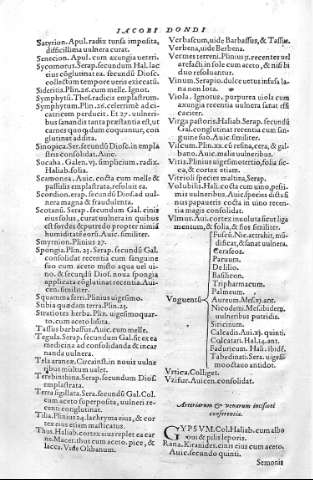 IACOBI DONDI
Satyrion. Apul. radix tunsa imposita,
difficillima uulnera curat.
Senecion. Apul. cum axungia ueteri.
Sycomorus. Serap. secundum Hal. lac
eius cōglutinat ea. secundū Diosc.
collectum tempore ueris exiccatū.
Sideritis. Plin. 26. cum melle. Ignot.
Symphytū. Thes. radices emplastrum.
Symphytum. Plin. 26. celerimè ad ci-
catricem perducit. Et 27. uulneri-
bus sanandis tanta præstantia est, ut
carnes quoq; dum coquuntur, con
glutinet addita.
Sinopica. Ser. secundū Diosc. in empla
stris consolidat. Auic.
Socaha. Galen. vj. simplicium. radix.
Haliab. folia.
Scamonea. Auic. cocta cum melle &
passillis emplastrata, resoluit ea.
Scordion. erap. secundū Diosc. ad uul-
nera magna & fraudulenta.
Scotanū. Serap. secundum Gal. cinis
eius solus, curat uulnera in quibus
est sordes & putredo propter nimiā
humiditatē oris. Auic. similiter.
Smyrnion. Plinius 27.
Spongia. Plin. 23. Serap. secundū Gal.
consolidat recentia cum sanguine
suo cum aceto misto aqua uel ui-
no. & secundū Diosc. noua spongia
applicata cōglutinat recentia. Aui-
cen. similiter.
Squamma ferri. Plinius uigesimo.
Stibia quædam terra. Plin. 23.
Stratiotes herba. Plin. uigesimoquar-
to, cum aceto lisita.
Tassus barbassus. Auic. cum melle.
Tegula. Serap. secundum Gal. fit ex ea
medicina ad consolidanda & incar
nanda uulnera.
Tela araneæ. Circainst. in nouis uulne
ribus multum ualet.
Terebinthina. Serap. secundum Diosc.
emplastrata.
Terra sigillata. Sera. secundū Gal. Col.
cum aceto superposita, uulneri re-
centi conglutinat.
Tilia. Plinius 24. lachryma eius, & cor
tex eius etiam masticatus.
Thus. Haliab. cortex eius replet ea car
ne. Macer. thus cum aceto, pice, &
lacca. Vide Olibanum.
Verbascum, uide Barbassus, & Tassus.
Verbena, uide Berbena.
Vermes terreni. Plinius. recenter uel
arefacti in sole cum aceto, & nisi bi
duo resoluuntur.
Vinum. Serapio. dulce uetus infusa la-
na non lota.
Viola. Ignotus. purpurea uiola cum
axungia recentia uulnera sanat iisi
cariter.
Virga pastoris. Haliab. Serap. secundū
Gal. conglutinat recentia cum san-
guine suo. Auic. similiter.
Viscum. Plin. xx. cū resina, cera, & gal-
bano. Auic. malis uulneribus.
Vitis. Plinius uigesimotertio, folia sic-
ca, & cortex etiam.
Vitreoli species maltina, Serap.
Volubilis. Hali. cocta cum uino, pessi-
mis uulneribus. Auic. species dicta si
nus papaueris cocta in uino recen-
tia magis consolidat.
Vlmus. Aui. cortex inuolutus ficut liga
mentum, & folia, & flos similiter.
Vnguentū
Fuscū. Nic. attrahit, mū
dificat, & sanat uulnera.
Ceraseos.
Paruum.
De lilio.
Basilicon.
Tripharmacum.
Palmeum.
Aureum Mes. 27. ant.
Nicodem. Mes. iudex,
uulneribus putridis.
Siricinum.
Calcadis. Aui. xj. quinti.
Colcatari. Hal. 14. ant.
Paduricum. Hali. ibidē.
Tabedinati. Sera. uigesi-
mooctauo antidot.
Vrtica. Colliget.
Vzifur. Auicen. consolidat.
Arteriarum & uenarum incisioni
conferentia.
GYPSVM. Col. Haliab. cum albo
oui & pilis leporis.
Rana. Kirarides. cinis eius cum aceto.
Auic. secundo quinti.
Semonis